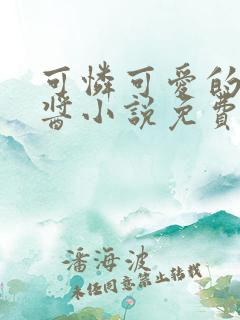 可憐可愛的
醬小說免費
潘海波
未经同意禁止转载